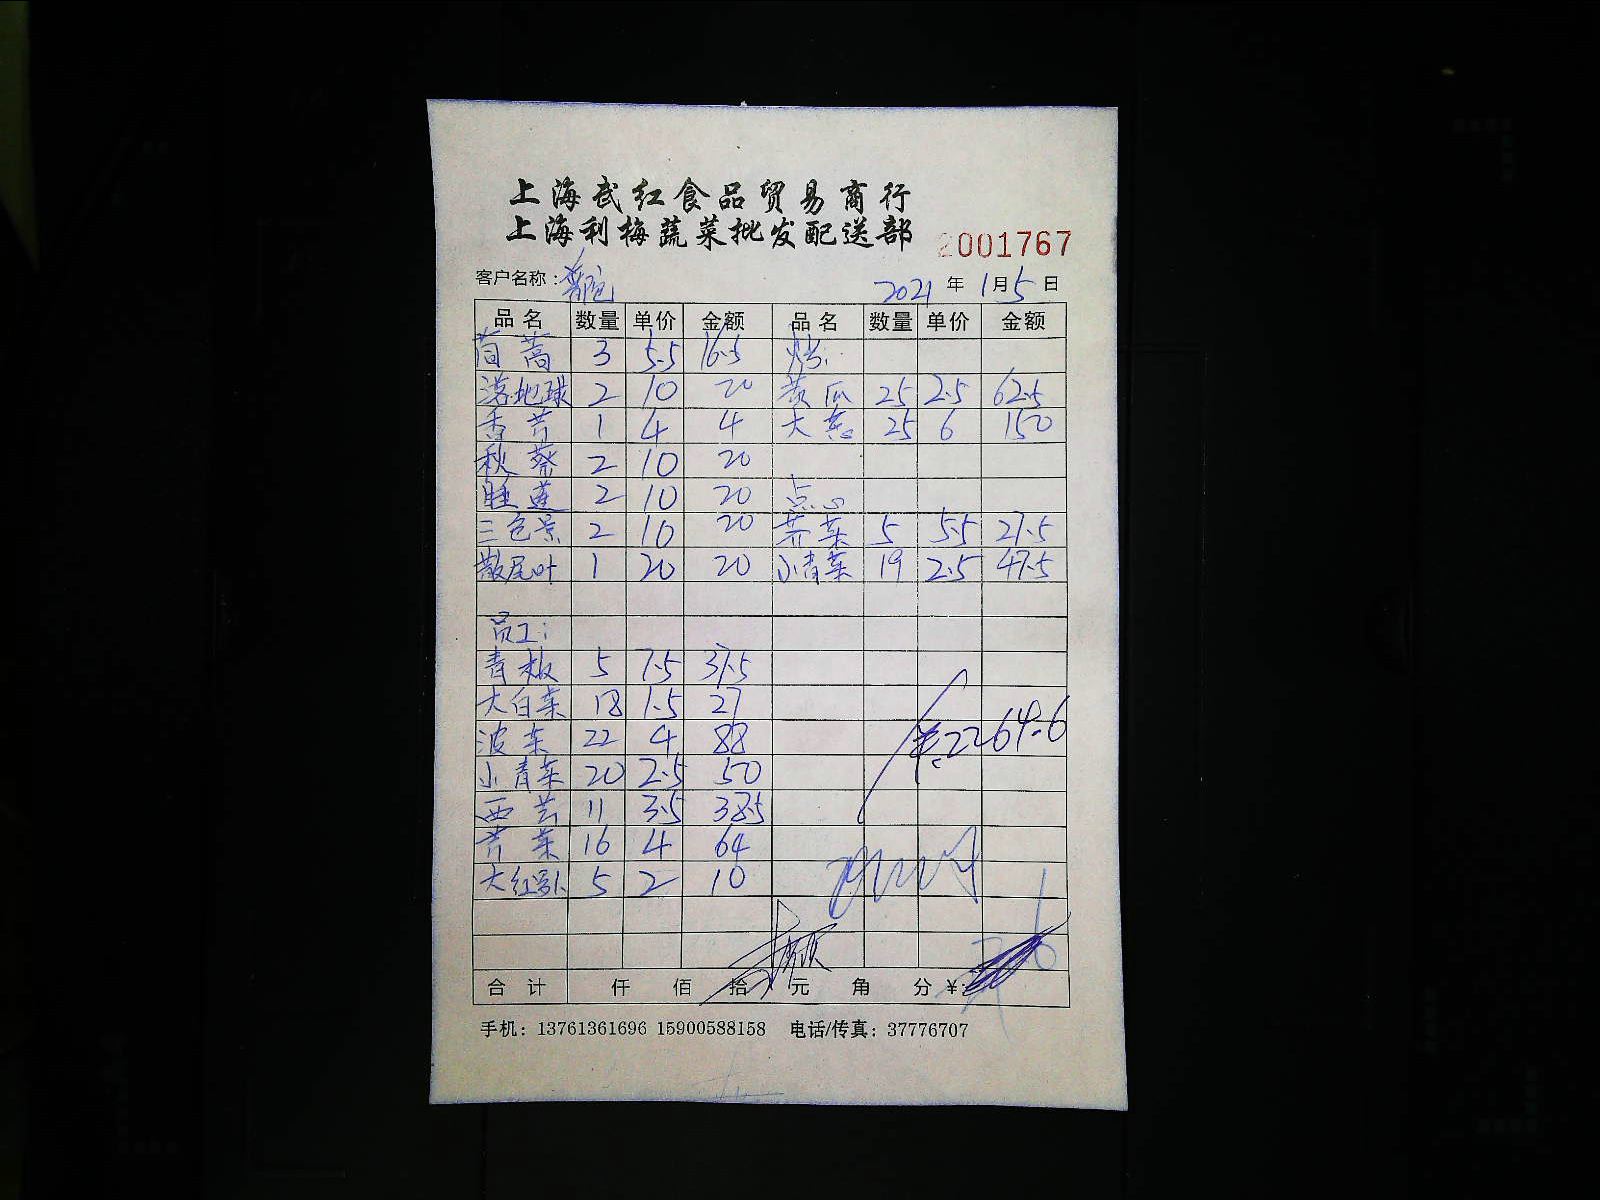 上海武红食品贸易商行
上海利梅蔬菜批发配送部
2001767
客户名称： 2021 年 1 月 5 日
品名 数量 单价 金额 品名 数量 单价 金额
茼蒿 3 5.5 16.5
落地球 2 10 20 黄瓜 25 2.5 62.5
香芹 1 4 4 大葱 25 6 150
秋葵 2 10 20
睡莲 2 10 20 点心
三色堇 2 10 20 荠菜 5 5.5 27.5
散尾叶 1 20 20 小青菜 19 2.5 47.5
员工：
青椒 5 7.5 37.5
大白菜 18 1.5 27
¥2264.6
波菜 22 4 88
小青菜 20 2.5 50
西芹 11 3.5 38.5
芹菜 16 4 64
大红萝卜 5 2 10
合计 仟 佰 拾 元 角 分 ¥:
手机：13761361696 15900588158 电话/传真：37776707